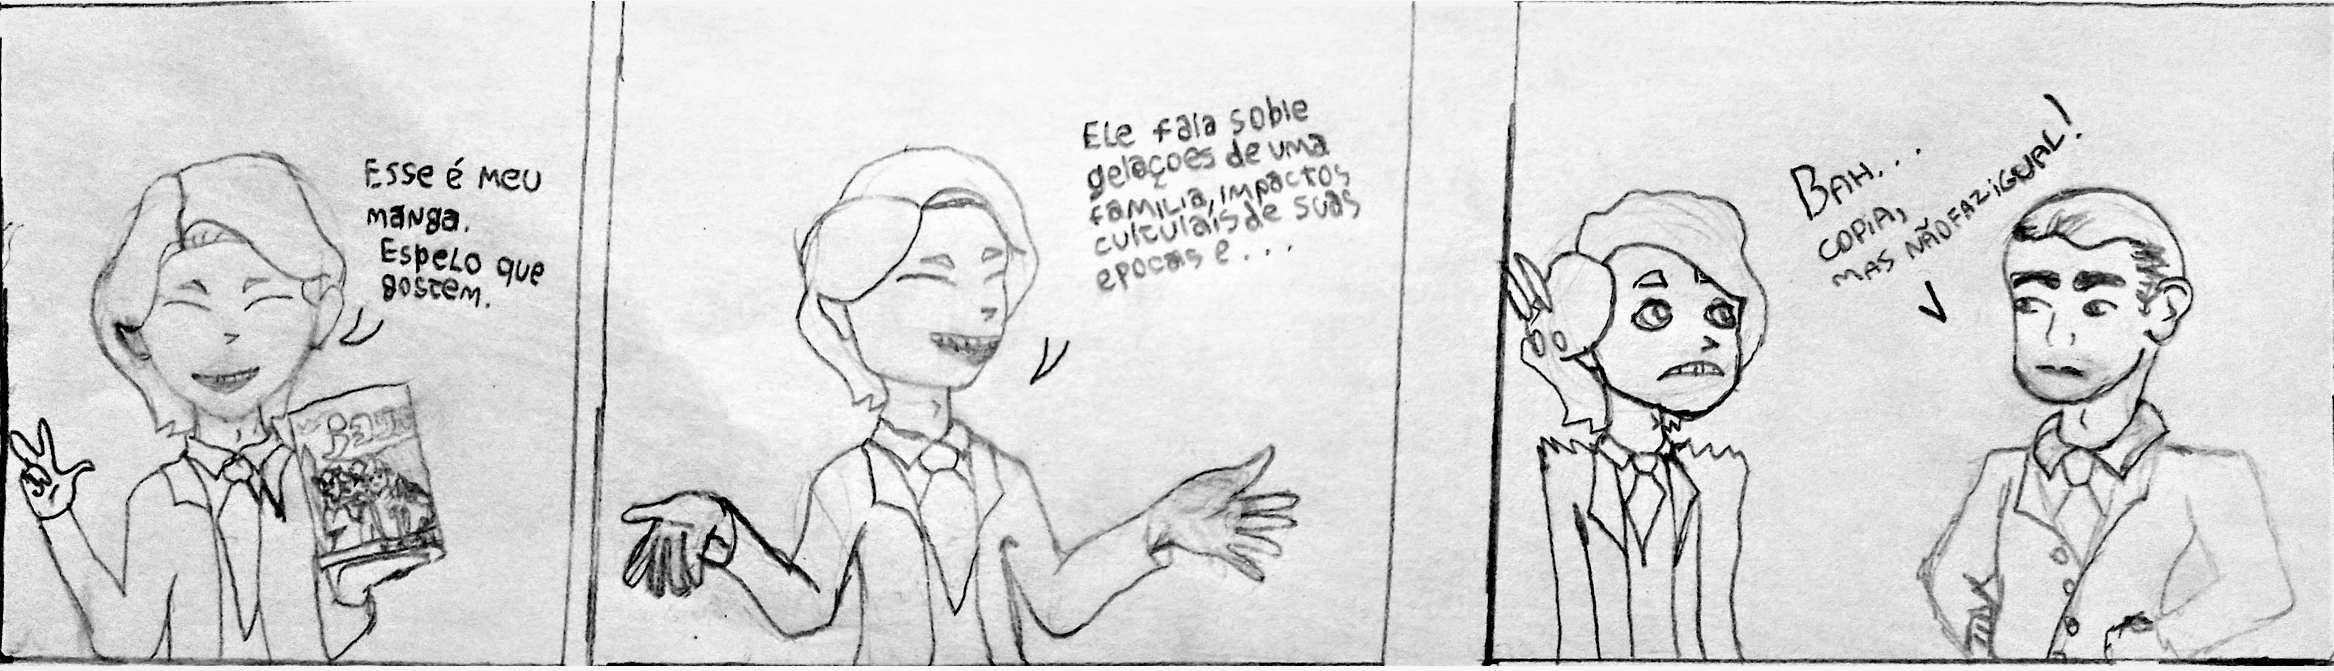 Esse é meu
manga.
Espelo que
gostem.
Ele fala soble
gelaçoes de uma
familia, impactos
culturais de suas
epocas e...
BAH...
COPIA,
MAS NÃO FAZ IGUAL!